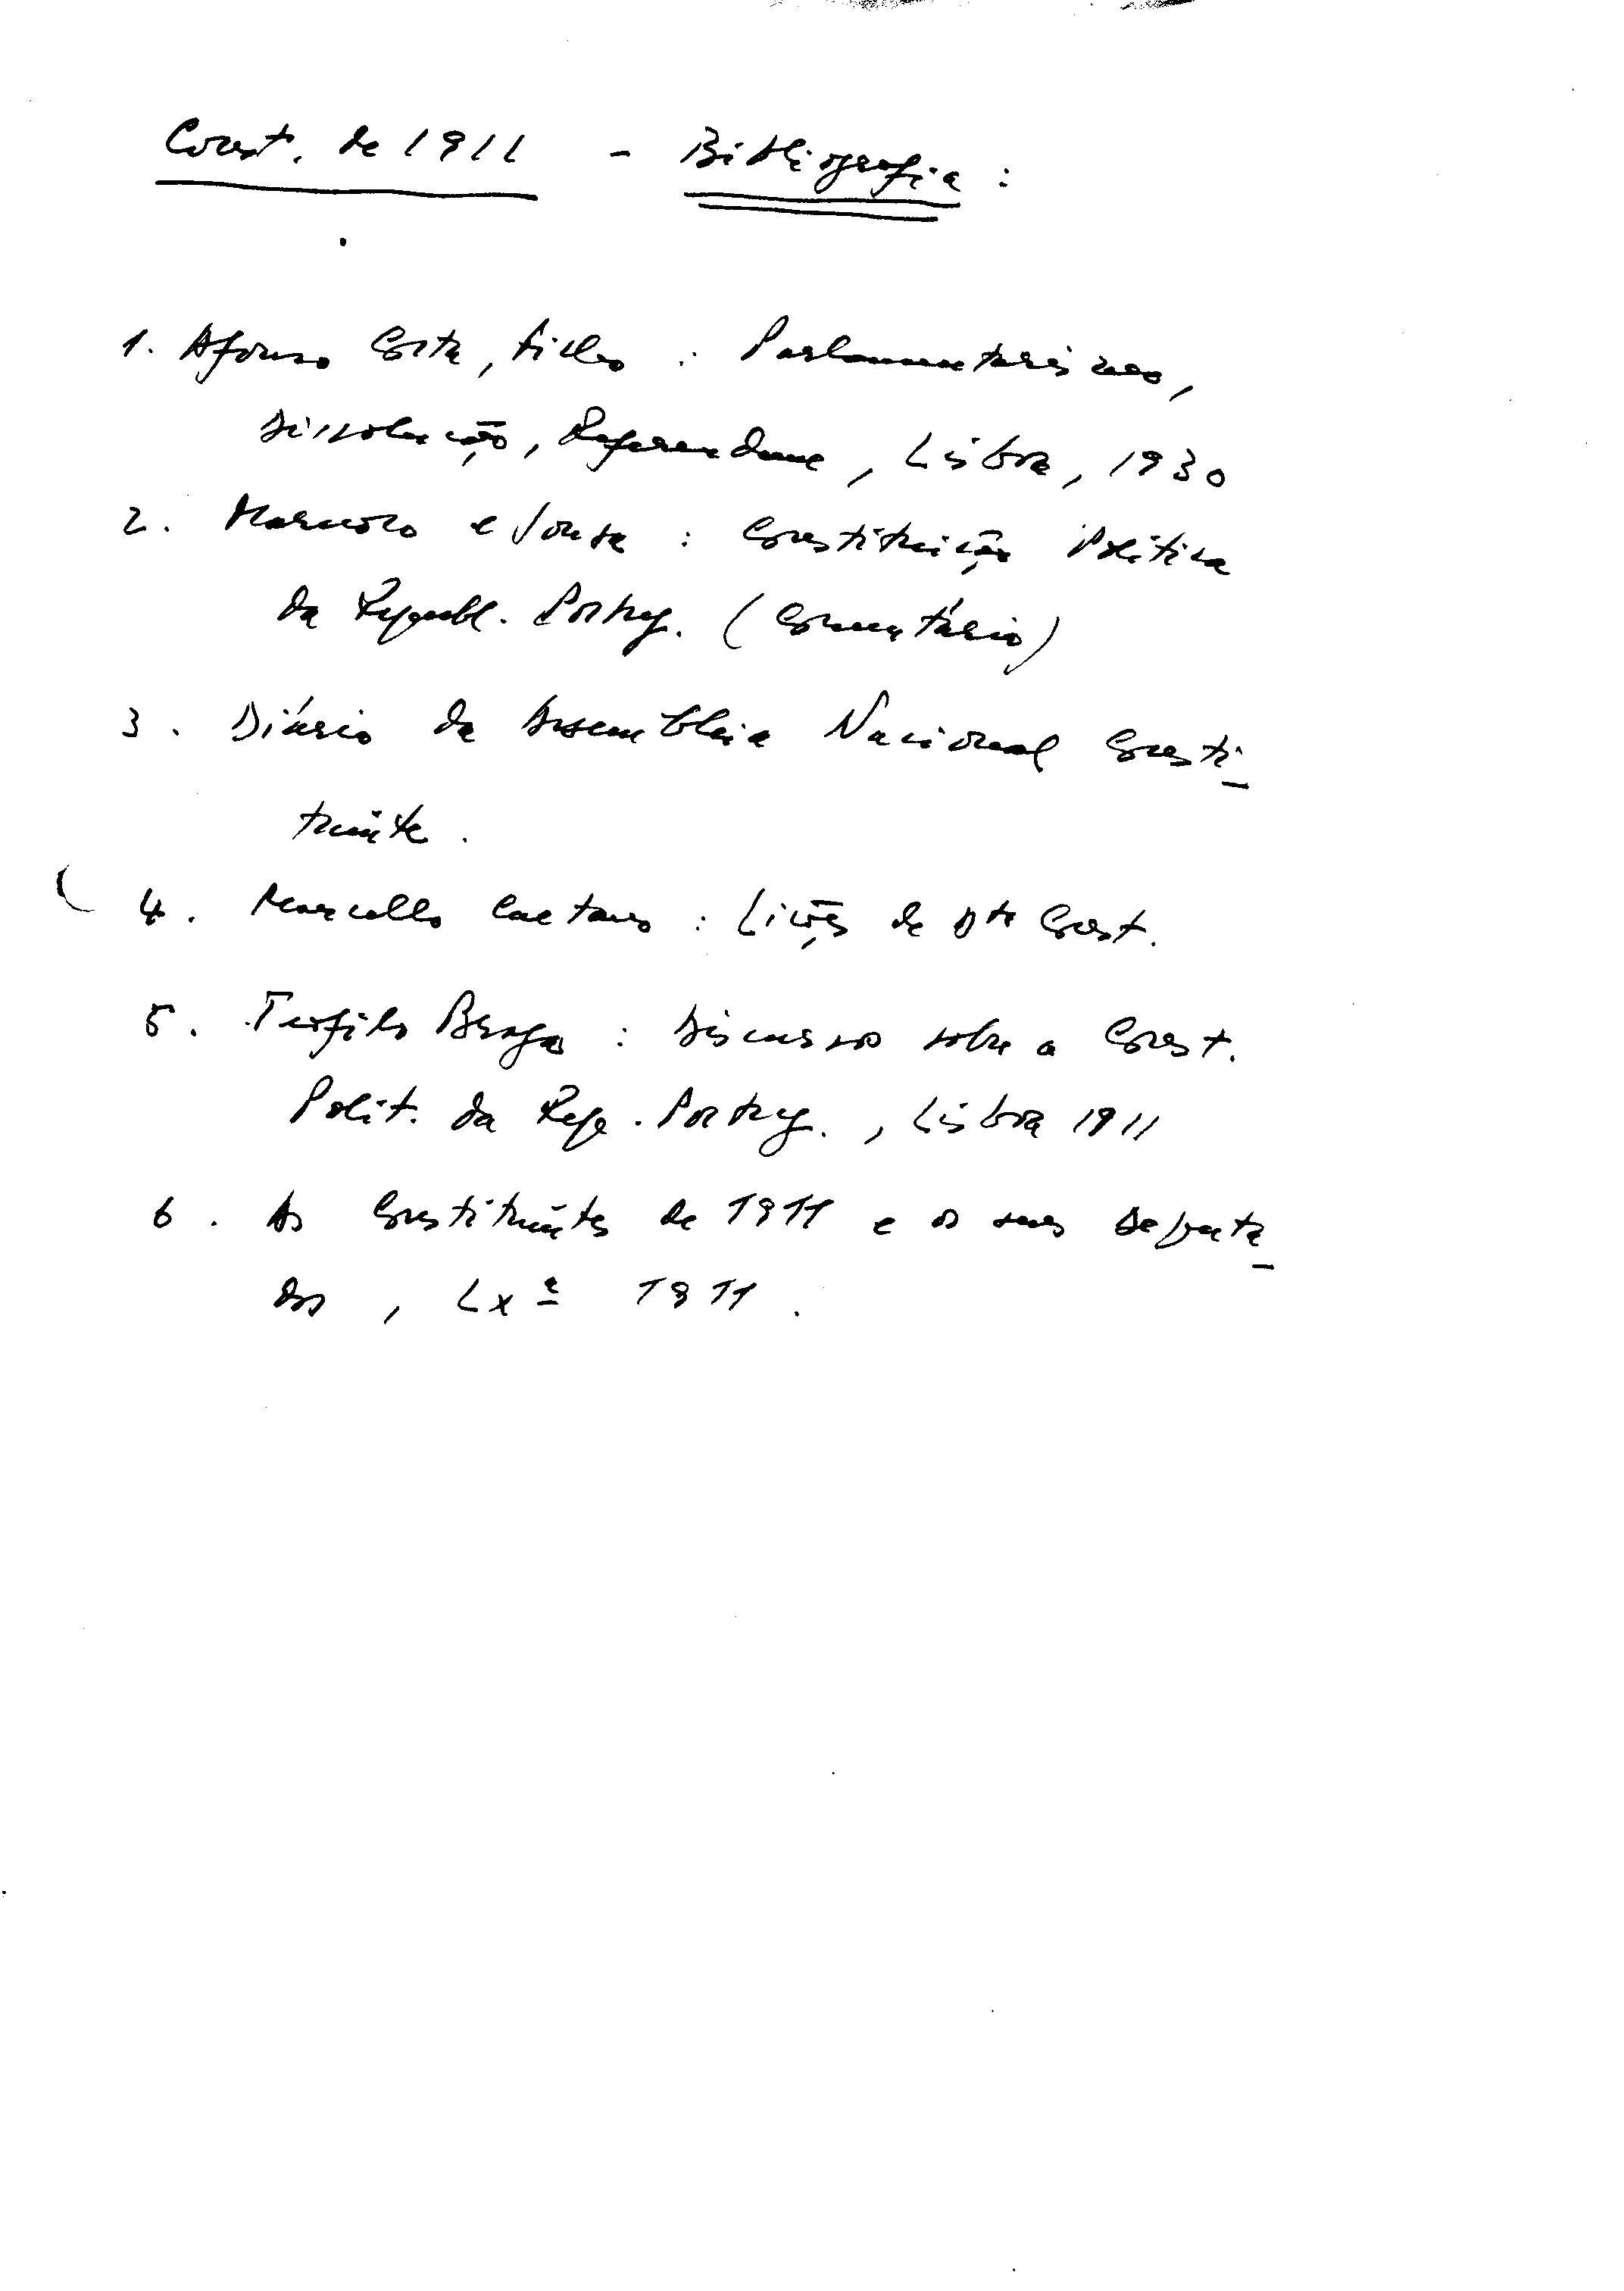 Const. de 1911 - Bibliografia :
1. Afonso Costa, filho : Parlamentarismo,
dissolução, Referendum, Lisboa, 1930
2. Marnoco e Sousa : Constituição Política
da Republ. Portug. (Comentário)
3. Diário da Assembleia Nacional Consti-
tuinte.
4. Marcello Caetano : Lições de Dto Const.
5. Teófilo Braga : Discurso sobre a Const.
Polit. da Rep. Portug., Lisboa 1911
6. As Constituintes de 1911 e os seus Deputa-
dos, Lxª 1911.